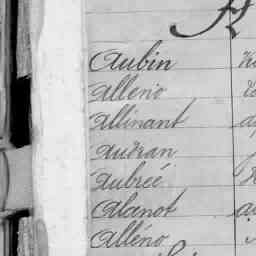 A
Aubin
Alleno
Allinant
Audran
Aubrée
Alanot
Alléno